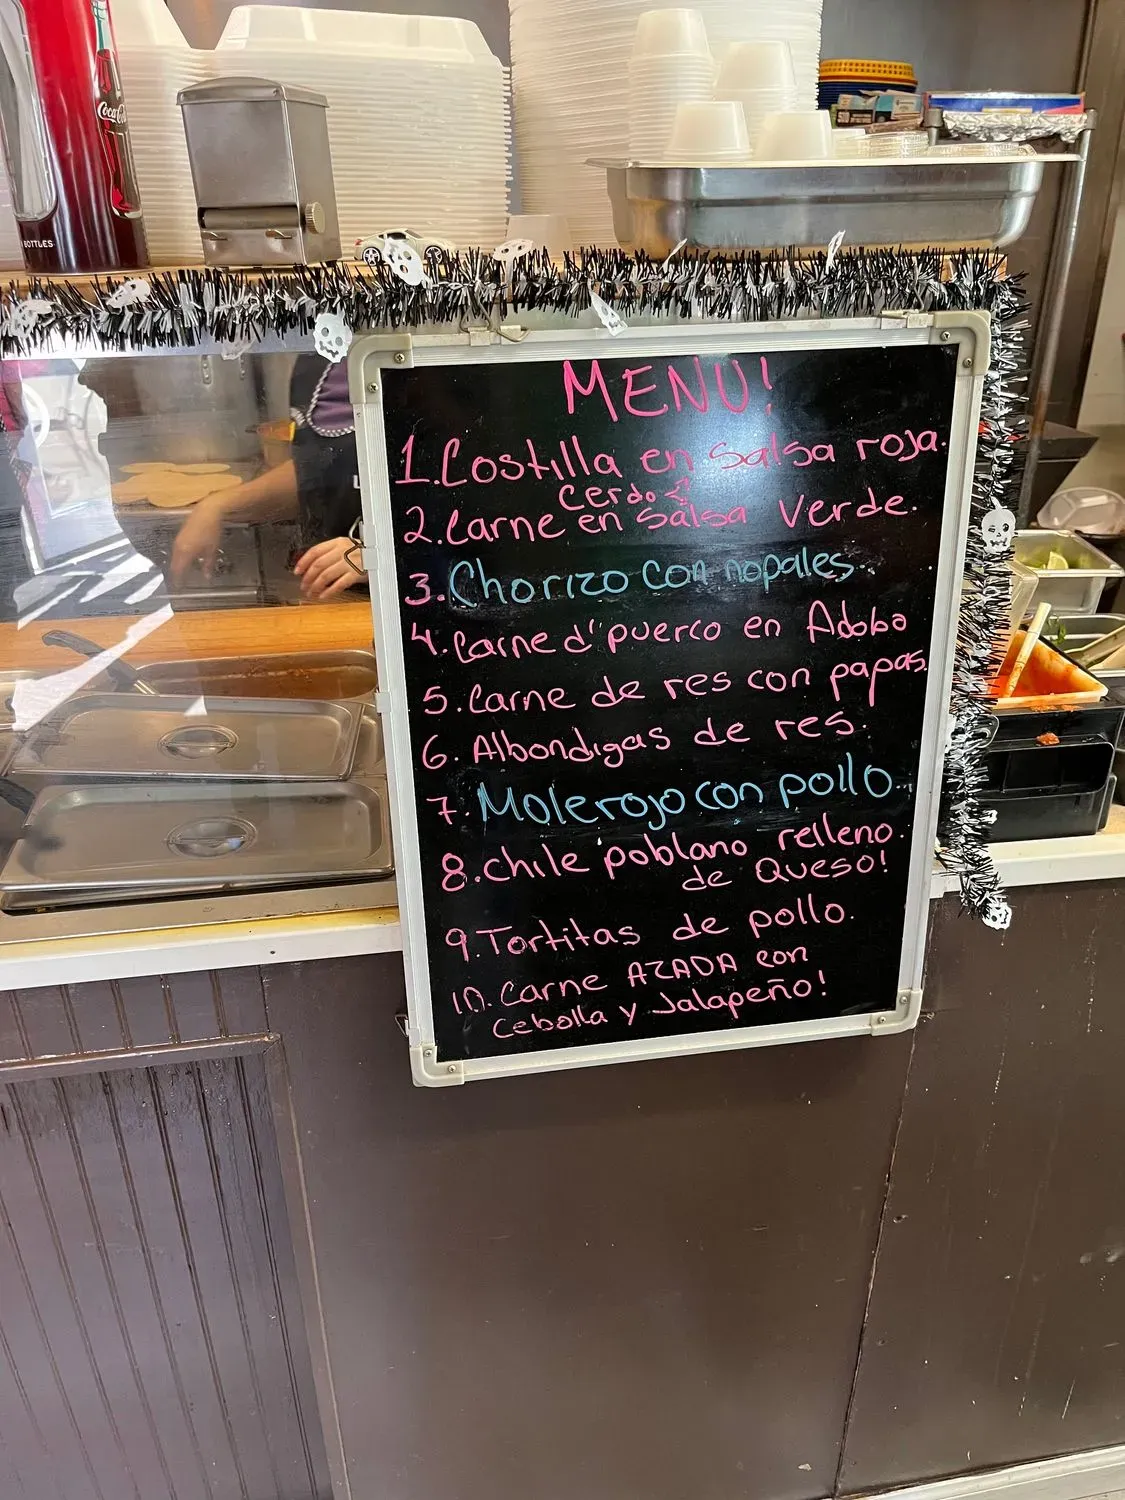 Coca-Cola
BOTTLES
MENU!
1. Costilla en Salsa roja.
cerdo
2. Carne en salsa Verde.
3. Chorizo Con nopales.
4. Carne d" puerco en Adobo
5. Carne de res con papas.
6. Albondigas de res.
7. Mole rojo con pollo.
8. chile poblano relleno.
de Queso!
9. Tortitas de pollo.
10. Carne AZADA con
Cebolla y Jalapeño!